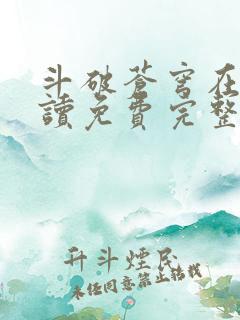 斗破苍穹在
讀免費完整
升斗煙民
未經同意禁止轉載